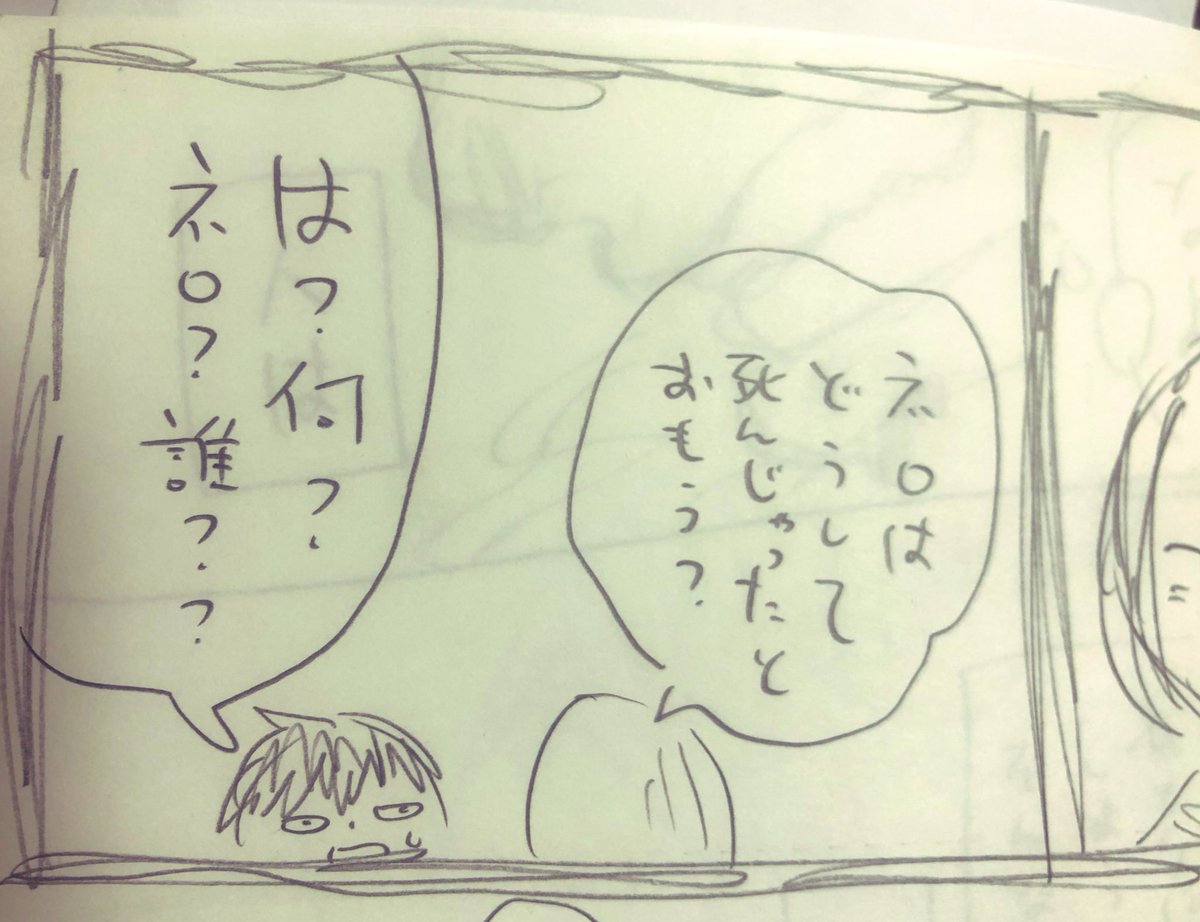 ネロは
どうして
死んじゃったと
おもう?
はっ?何?
ネロ?誰??